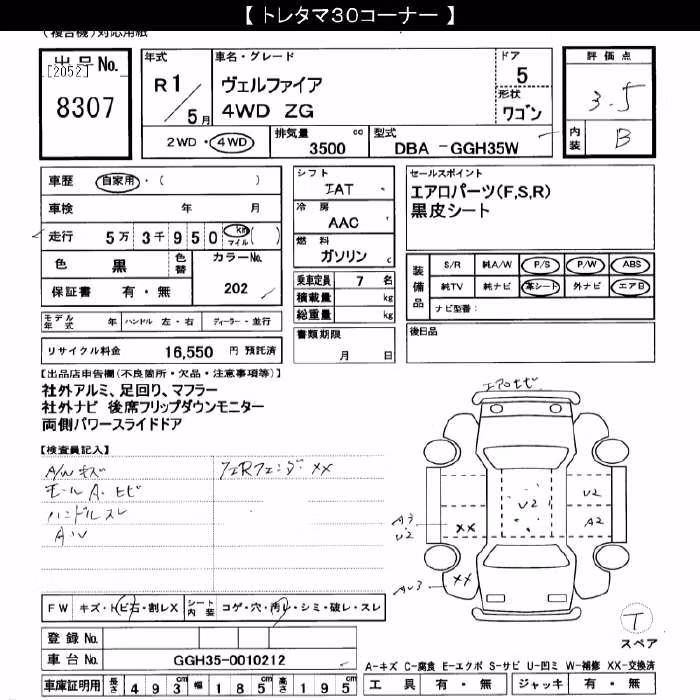 【 トレタマ30コーナー 】
(複合機)対応用紙
出品No.
[2052]
8307
年式
R1/5月
車名・グレード
ヴェルファイア
4WD ZG
ドア
5
形状
ワゴン
評価点
3.5
内装
B
2WD・4WD
排気量 3500 cc
型式 DBA -GGH35W
車歴 自家用・( )
車検 年 月
走行 5万 3千 950 km マイル ( )
色 黒
色替
カラーNo. 202
保証書 有・無
シフト
IAT
冷房
AAC
燃料
ガソリン c
乗車定員 7 名
積載量 kg
総重量 kg
セールスポイント
エアロパーツ(F,S,R)
黒皮シート
装備品
S/R 純A/W P/S P/W ABS
純TV 純ナビ 革シート 外ナビ エアB
ナビ型番:
モデル年式 年 ハンドル 左・右 ディーラー・並行
リサイクル料金 16,550 円 預託済
書類期限
月 日
後日品
【出品店申告欄(不良箇所・欠品・注意事項等)】
社外アルミ、足回り、マフラー
社外ナビ 後席フリップダウンモニター
両側パワースライドドア
【検査員記入】
A/Wキズ
モールA・ヒビ
ハンドルスレ
AU
フェRフェンダーXX
エアロヒビ
U2
U2
A2
A3
U2
XX
XX
AU3
T
スペア
FW キズ・トビ石・割レX
シート内装 コゲ・穴・汚レ・シミ・破レ・スレ
登録No.
車台No. GGH35-0010212
A-キズ C-腐食 E-エクボ S-サビ U-凹ミ W-補修 XX-交換済
車庫証明用 長さ 493cm 幅 185cm 高さ 195cm
工具 有・無 ジャッキ 有・無